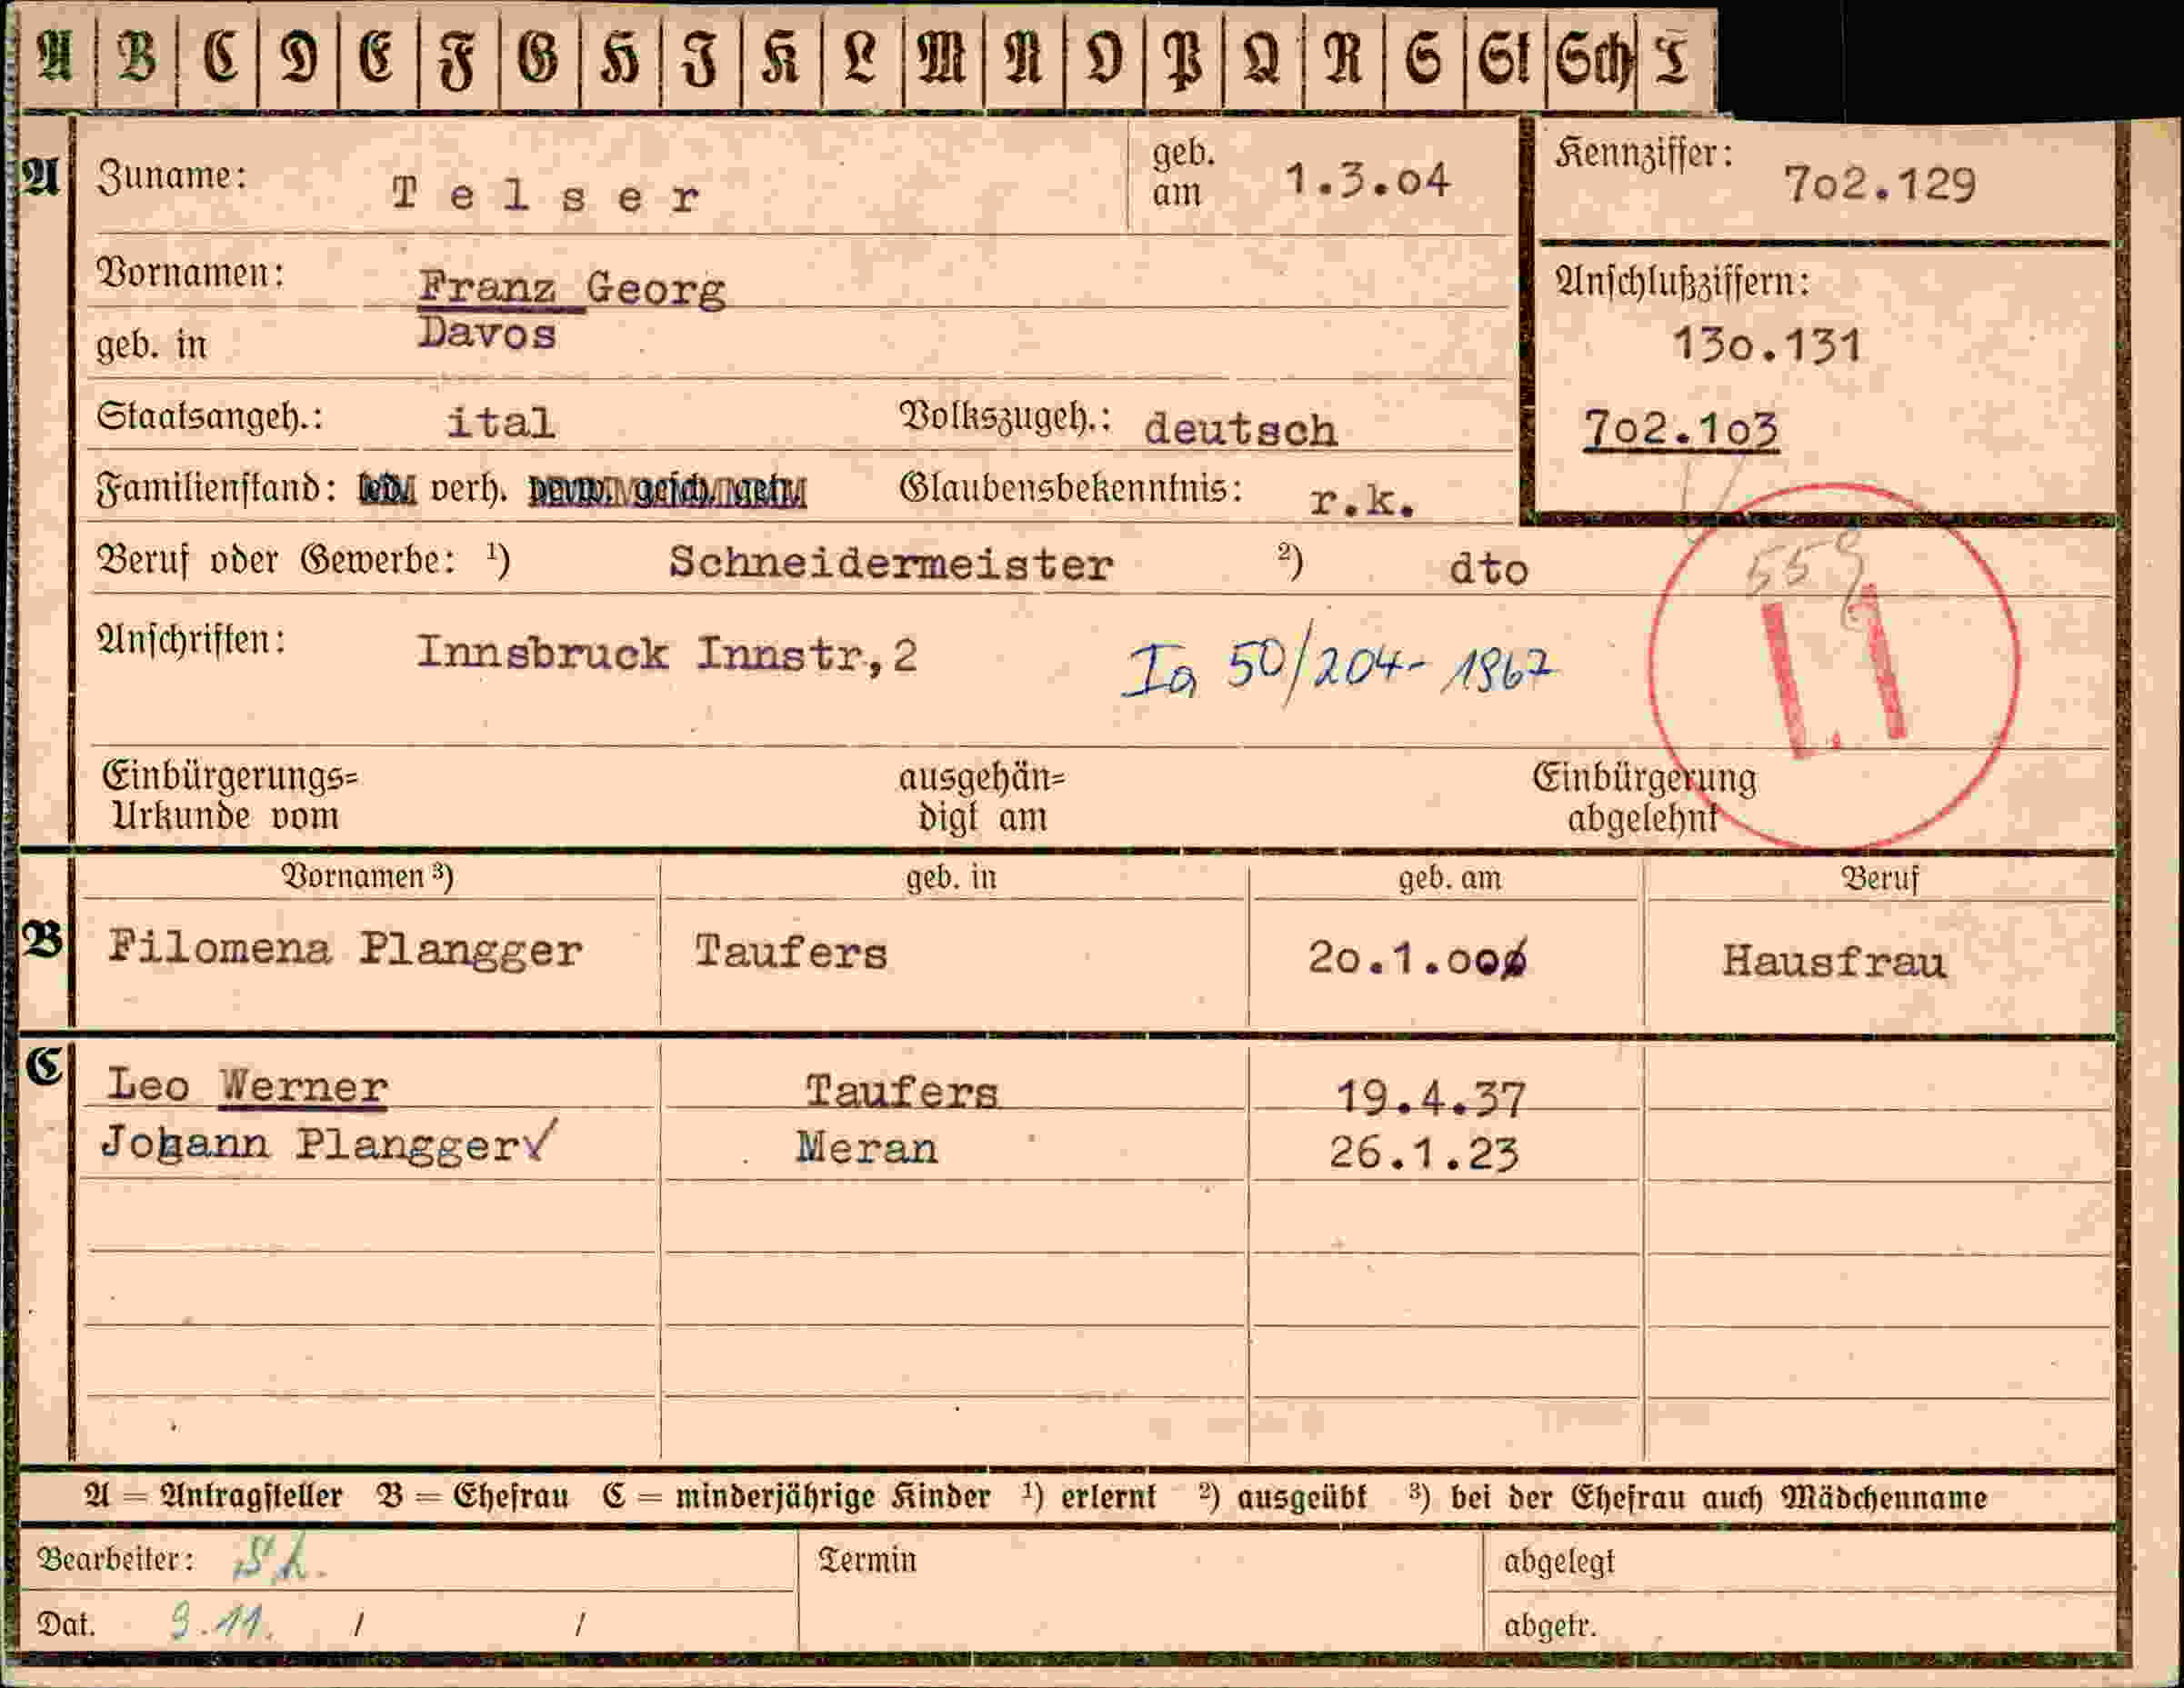 A B C D E F G H I K L M N O P Q R S St Sch T
A Zuname: Telser geb. am 1.3.04 Kennziffer: 702.129
Vornamen: Franz Georg Anschlußziffern:
geb. in Davos 130.131
Staatsangeh.: ital Volkszugeh.: deutsch 702.103
Familienstand: verh. Glaubensbekenntnis: r.k.
Beruf oder Gewerbe: ¹) Schneidermeister ²) dto
Anschriften: Innsbruck Innstr,2 Ia 50/204- 1962
Einbürgerungs= ausgehän= Einbürgerung
Urkunde vom digt am abgelehnt
Vornamen ³) geb. in geb. am Beruf
B Filomena Plangger Taufers 20.1.00 Hausfrau
C Leo Werner Taufers 19.4.37
Johann Plangger✓ Meran 26.1.23
A = Antragsteller B = Ehefrau C = minderjährige Kinder ¹) erlernt ²) ausgeübt ³) bei der Ehefrau auch Mädchenname
Bearbeiter: Termin abgelegt
Dat. 9.11. / / abgetr.